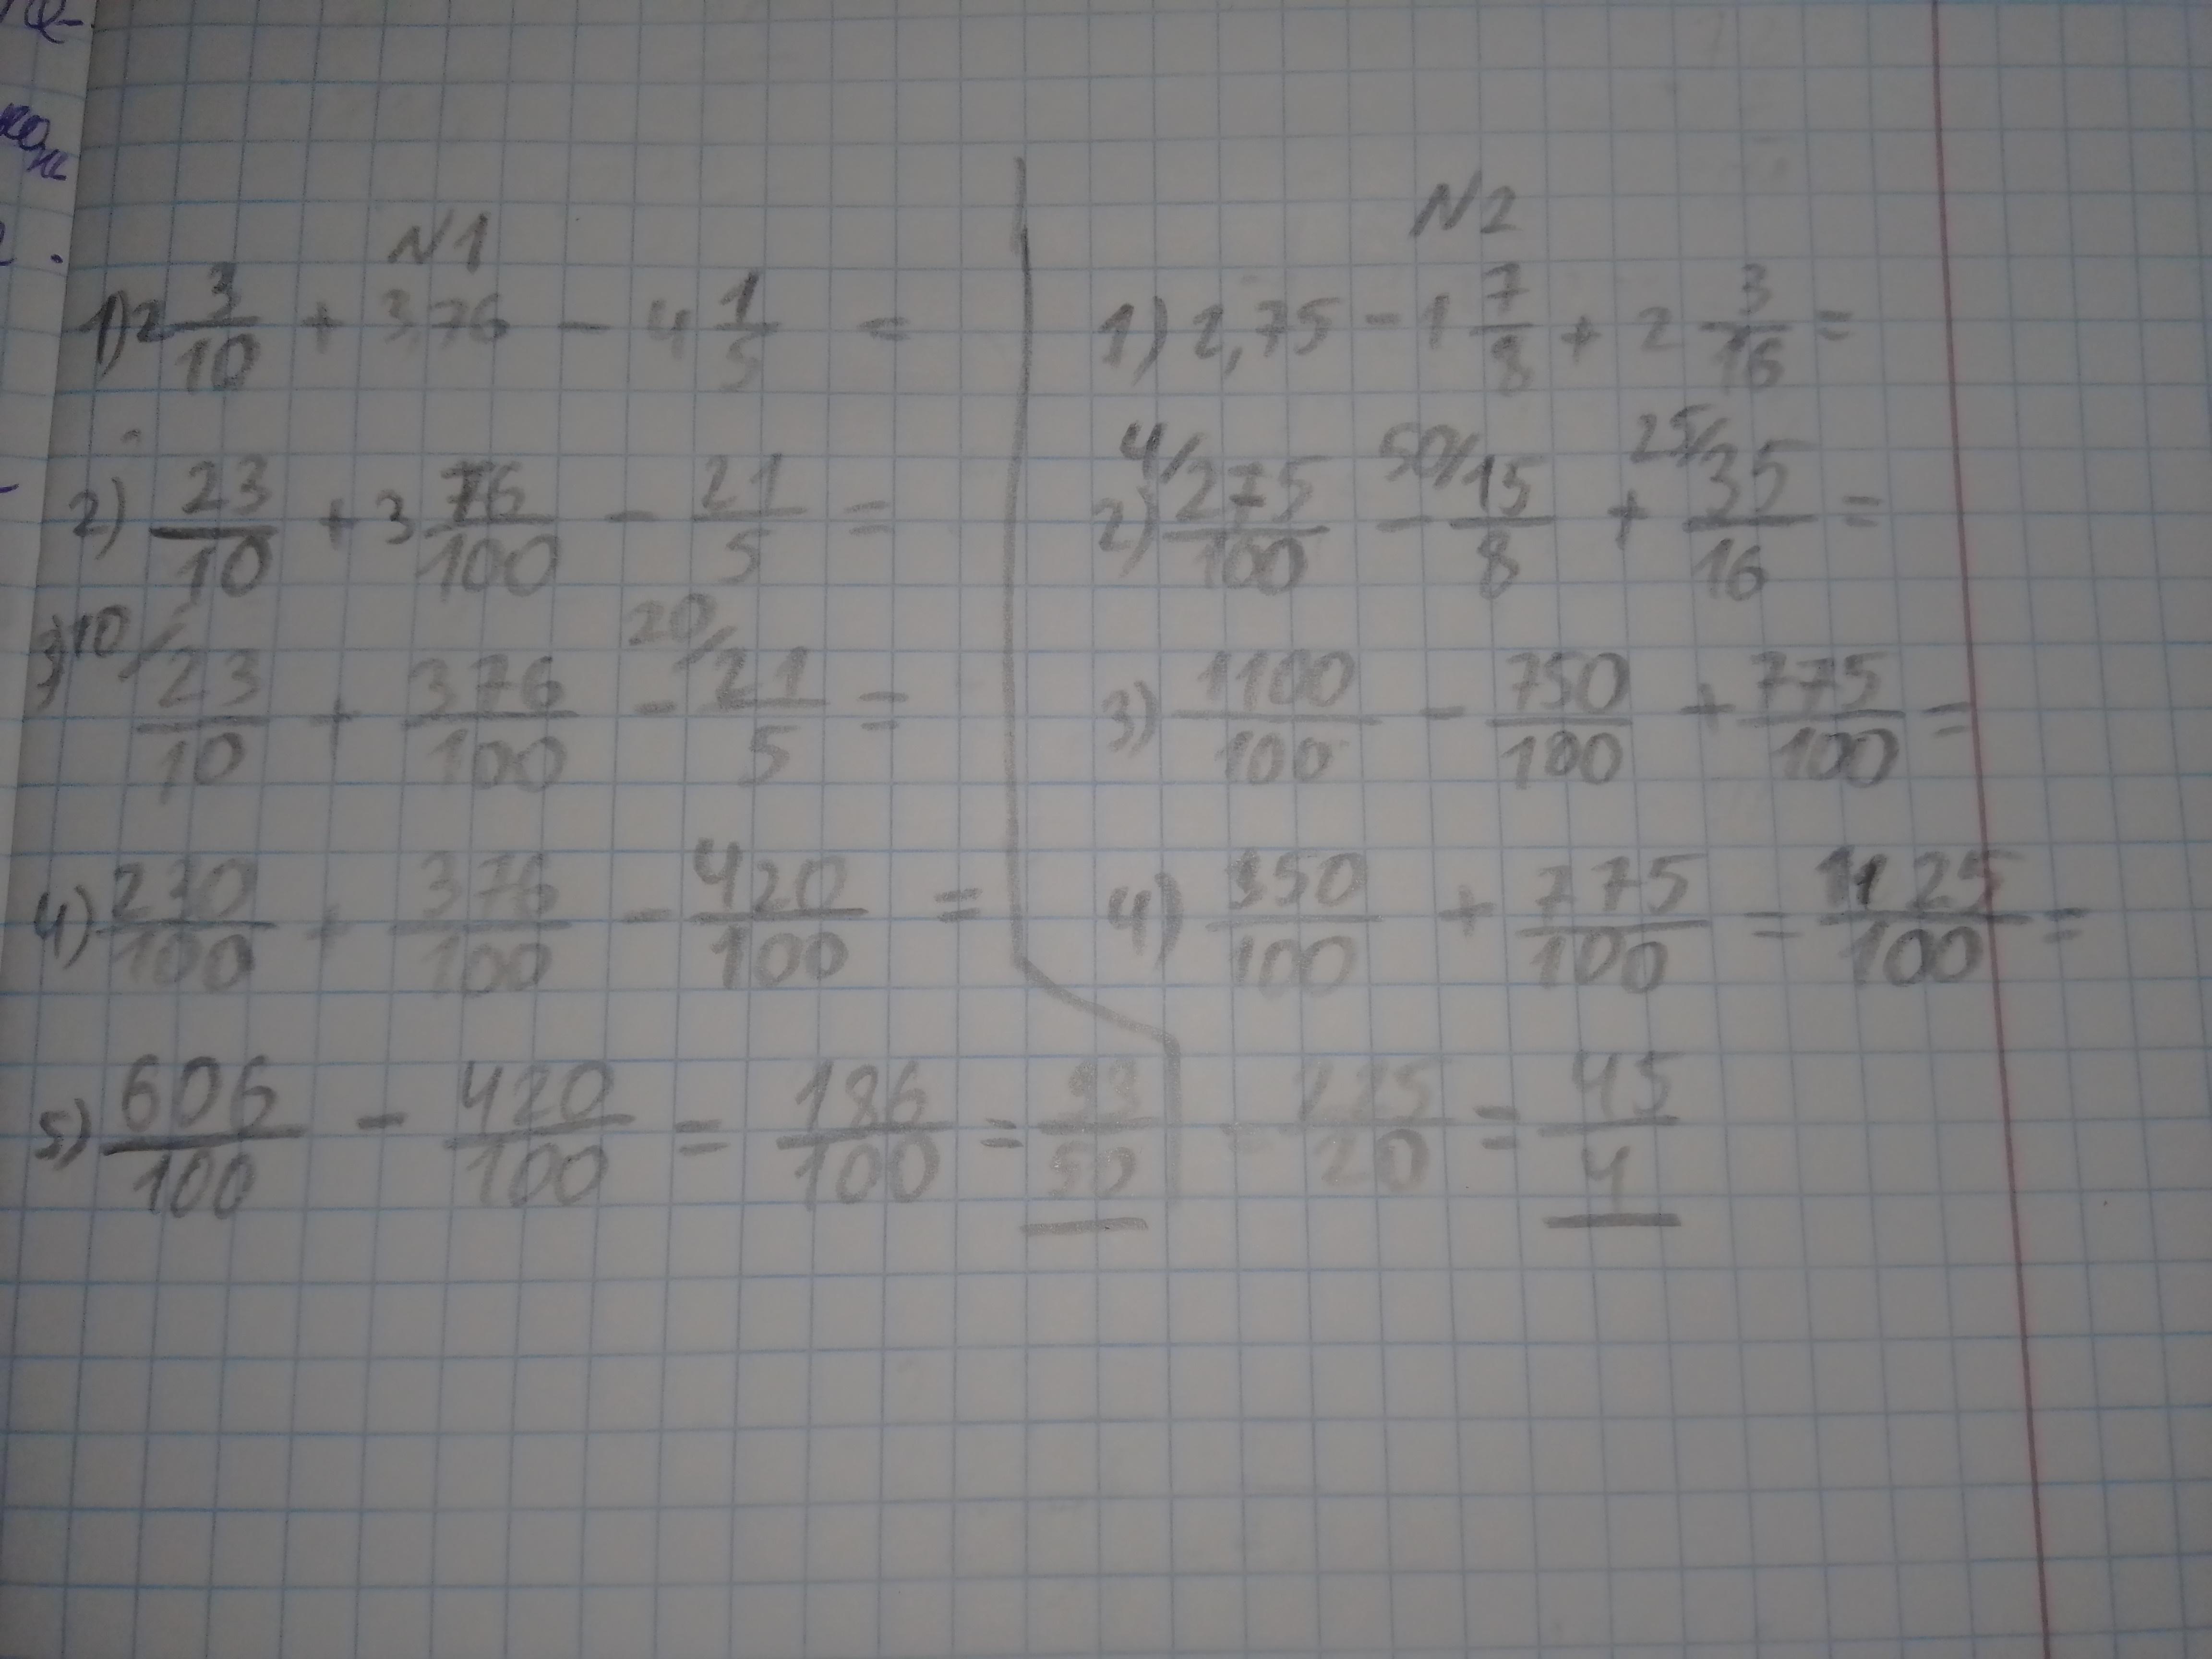 N1
1) 2 3/10 + 3,76 - 4 1/5 =
2) 23/10 + 3 76/100 - 21/5 =
3) 10/ 23/10 + 376/100 - 20/ 21/5 =
4) 230/100 + 376/100 - 420/100 =
5) 606/100 - 420/100 = 186/100 = 93/50
N2
1) 2,75 - 1 7/8 + 2 3/16 =
2) 4/ 275/100 - 50/ 15/8 + 25/ 35/16 =
3) 1100/100 - 750/100 + 775/100 =
4) 350/100 + 775/100 = 1125/100 =
= 225/20 = 45/4